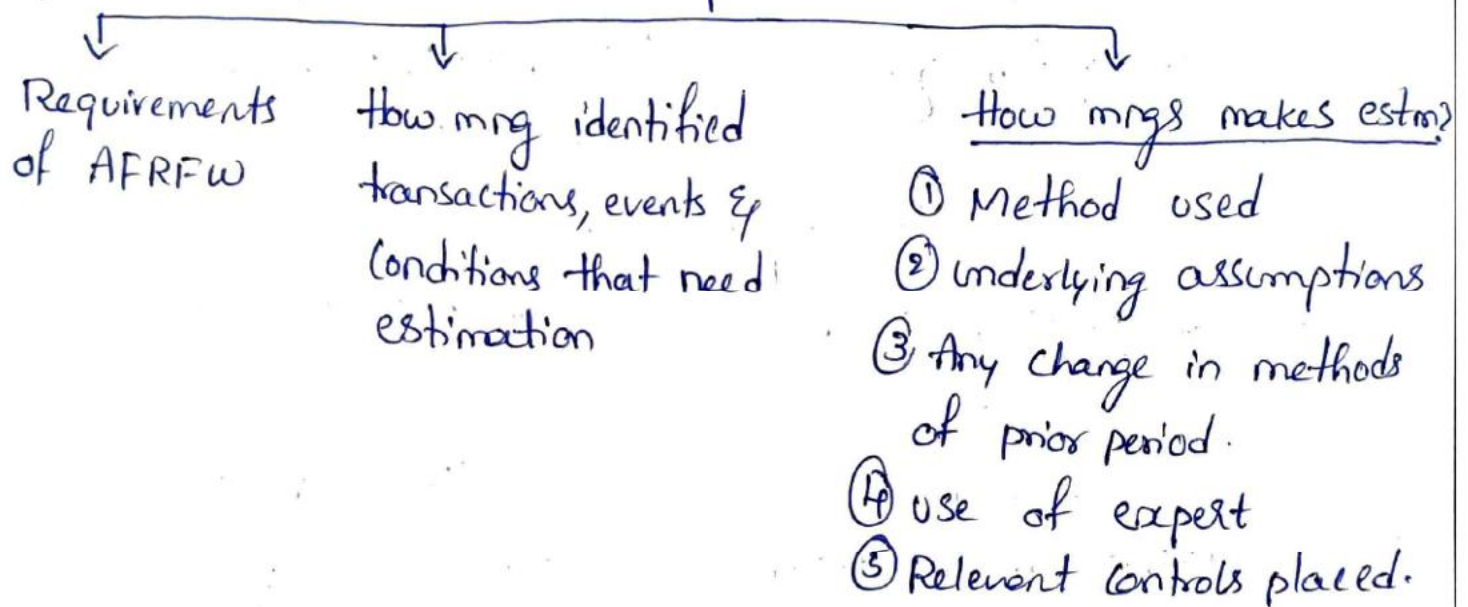 Requirements
of AFRFW
How mng identified
transactions, events &
Conditions that need
estimation
How mngs makes estm?
① Method used
② underlying assumptions
③ Any change in methods
of prior period.
④ use of expert
⑤ Relevant controls placed.